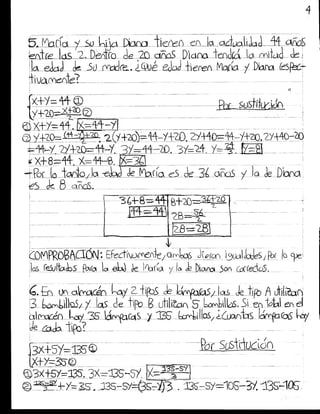 4
5. María y su hija Diana tienen en la actualidad 44 años
entre las 2. Dentro de 20 años Diana tendrá la mitad de
la edad de su madre. ¿Qué edad tienen María y Diana respec-
tivamente?
{X+Y=44 ①
Y+20=X+20/2 ②
Por sustitución
① X+Y=44. X=44-Y
② Y+20=(44-Y)+20/2. 2(Y+20)=44-Y+20. 2Y+40=44-Y+20. 2Y+40-20
=44-Y. 2Y+20=44-Y. 3Y=44-20. 3Y=24. Y=24/3. Y=8
* X+8=44. X=44-8. X=36
→Por lo tanto, la edad de María es de 36 años y la de Diana
es de 8 años.
36+8=44
44=44
8+20=36+20/2
28=56/2
28=28
COMPROBACIÓN: Efectivamente, ambas dieron igualdades, Por lo que
los resultados para la edad de María y la de Diana son correctos.
6. En un almacén hay 2 tipos de lámparas, las de tipo A utilizan
3 bombillos, y las de tipo B utilizan 5 bombillos. Si en total en el
almacén hay 35 lámparas y 135 bombillos, ¿Cuántas lámparas hay
de cada tipo?
{3X+5Y=135 ①
X+Y=35 ②
Por Sustitución
① 3X+5Y=135. 3X=135-5Y. X=135-5Y/3
② 135-5Y/3+Y=35. 135-5Y=(35-Y)3. 135-5Y=105-3Y. 135-105